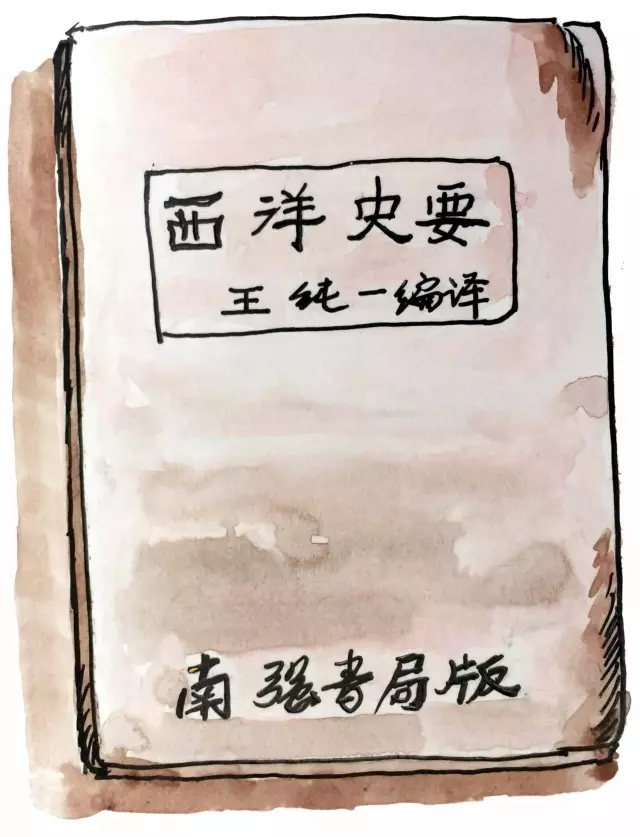 西洋史要
王纯一编译
南强书局版